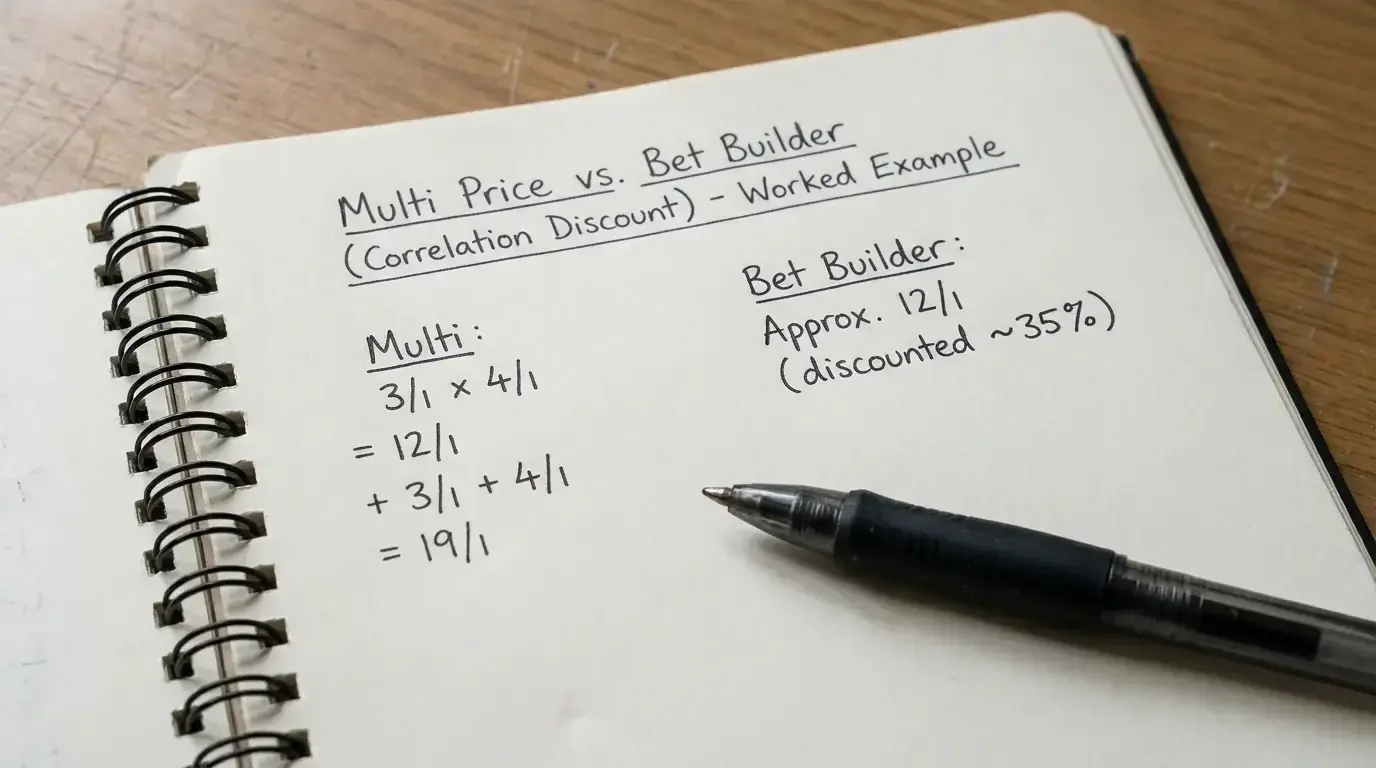 Multi Price vs. Bet Builder
(Correlation Discount) – Worked Example
Multi:
3/1 × 4/1
= 12/1
+ 3/1 + 4/1
= 19/1
Bet Builder:
Approx. 12/1
(discounted ~35%)